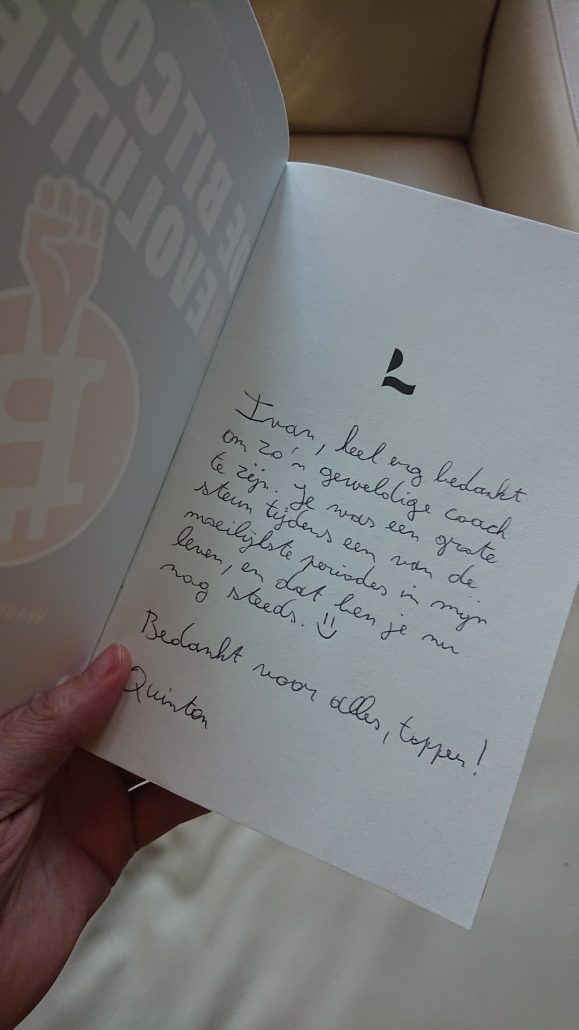 DE BITCOI
REVOLUTIE
Ivan, heel erg bedankt
om zo'n geweldige coach
te zijn. Je was een grote
steun tijdens een van de
moeilijkste periodes in mijn
leven, en dat ben je nu
nog steeds. :)
Bedankt voor alles, topper!
Quinten